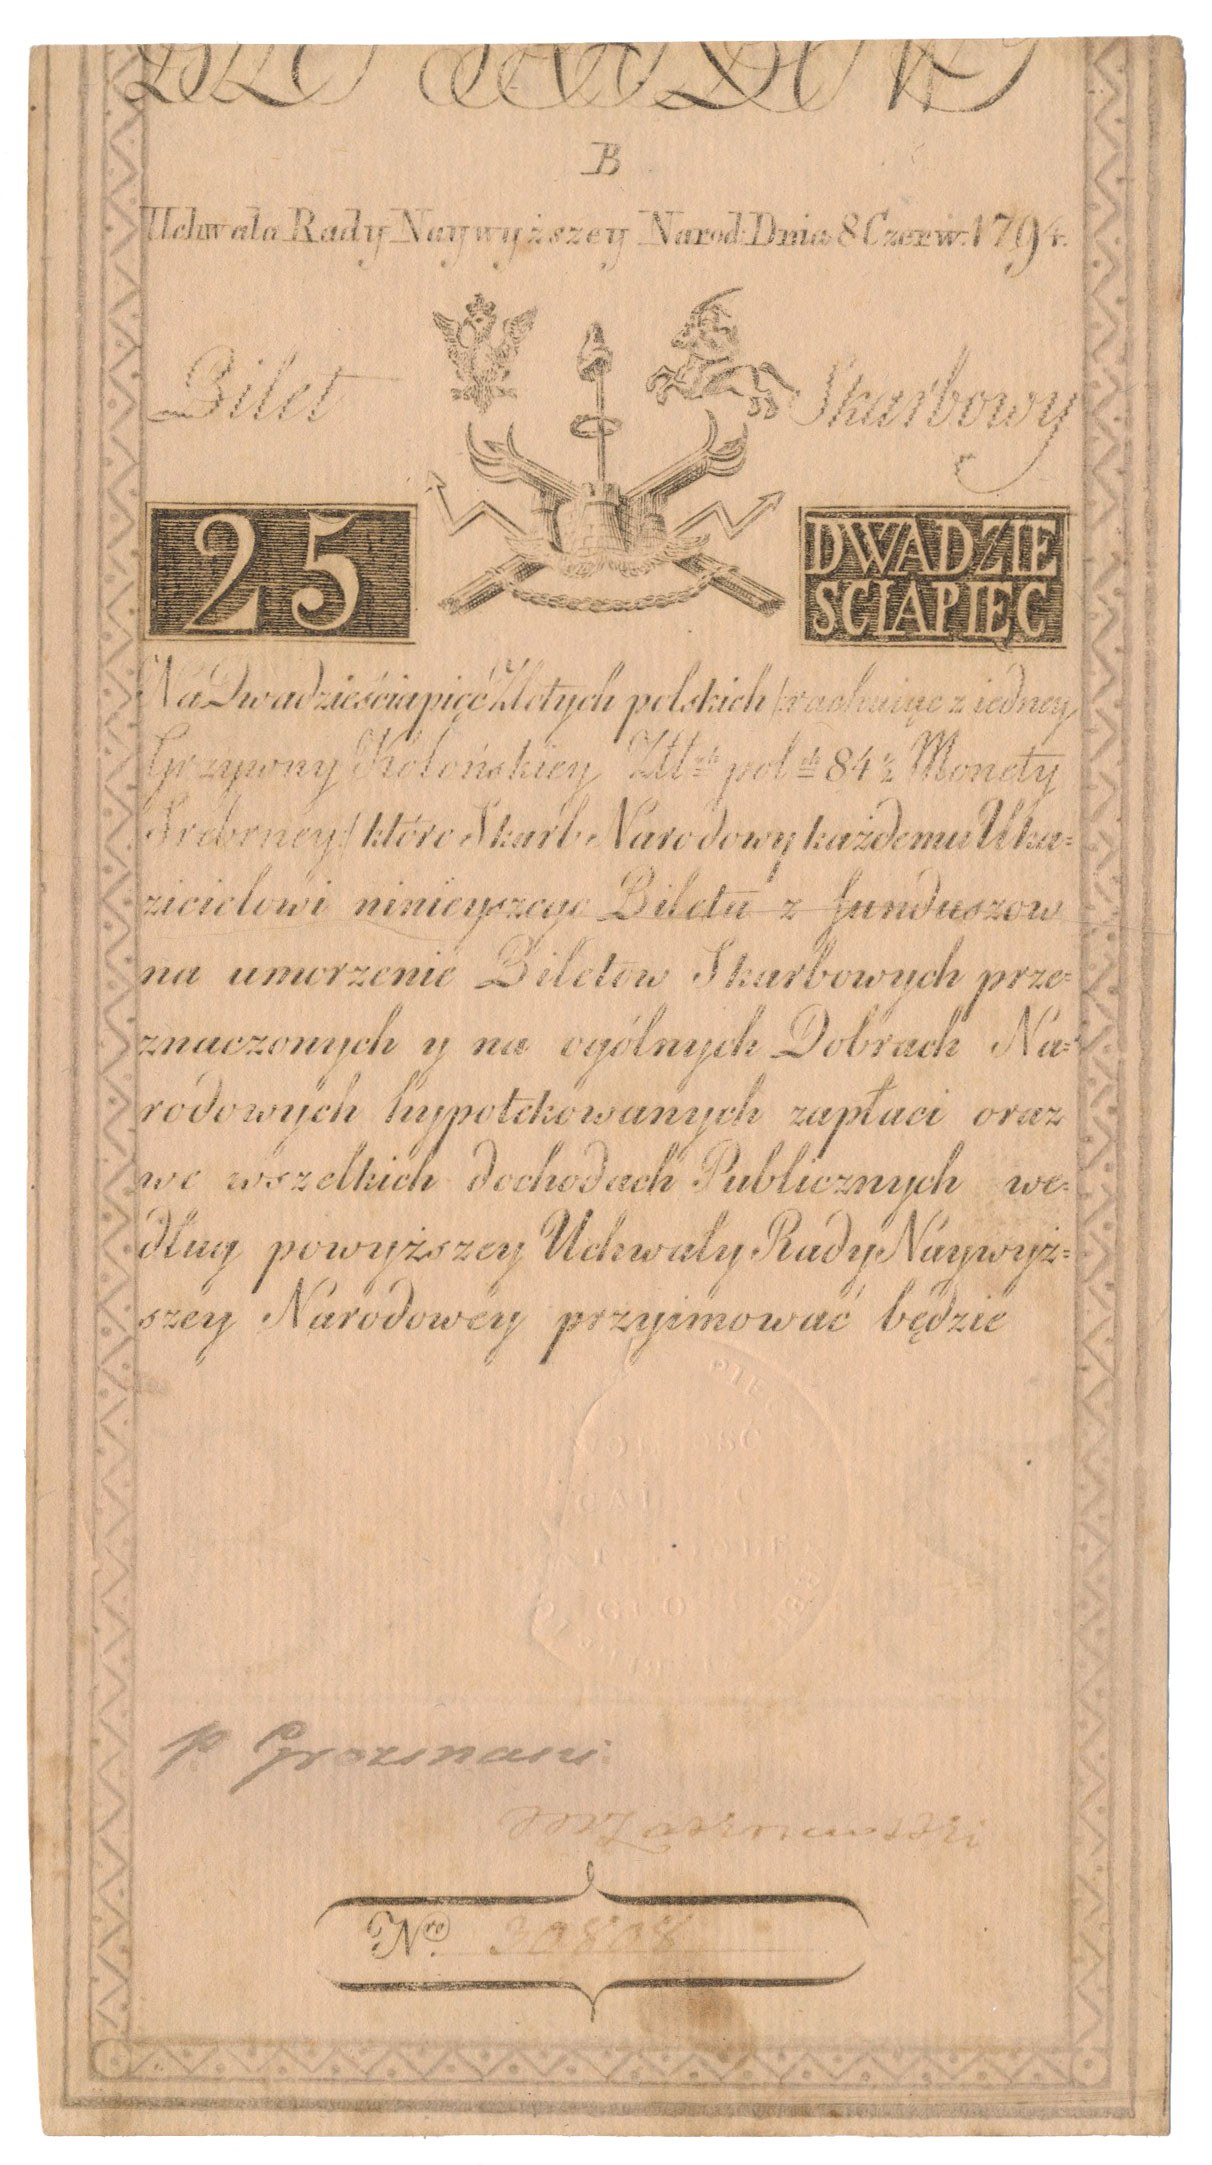 B
Uchwała Rady Naywyższey Narod: Dnia 8 Czerw: 1794.
Bilet Skarbowy
25 DWADZIE
SCIAPIĘC
Na Dwadzieściapięć Złotych polskich /rachuiąc z iedney
Grzywny Kolońskiey Złł: pol: 84 ½ Monety
Srebrney/ które Skarb Narodowy każdemu Uka=
zicielowi ninieyszego Biletu z funduszow
na umorzenie Biletow Skarbowych prze=
znaczonych y na ogólnych Dobrach Na=
rodowych hypotekowanych zapłaci oraz
we wszelkich dochodach Publicznych we=
dług powyższey Uchwały Rady Naywyż=
szey Narodowey przyimować będzie
WOLNOSC
p Grozmani
Nro. 30808